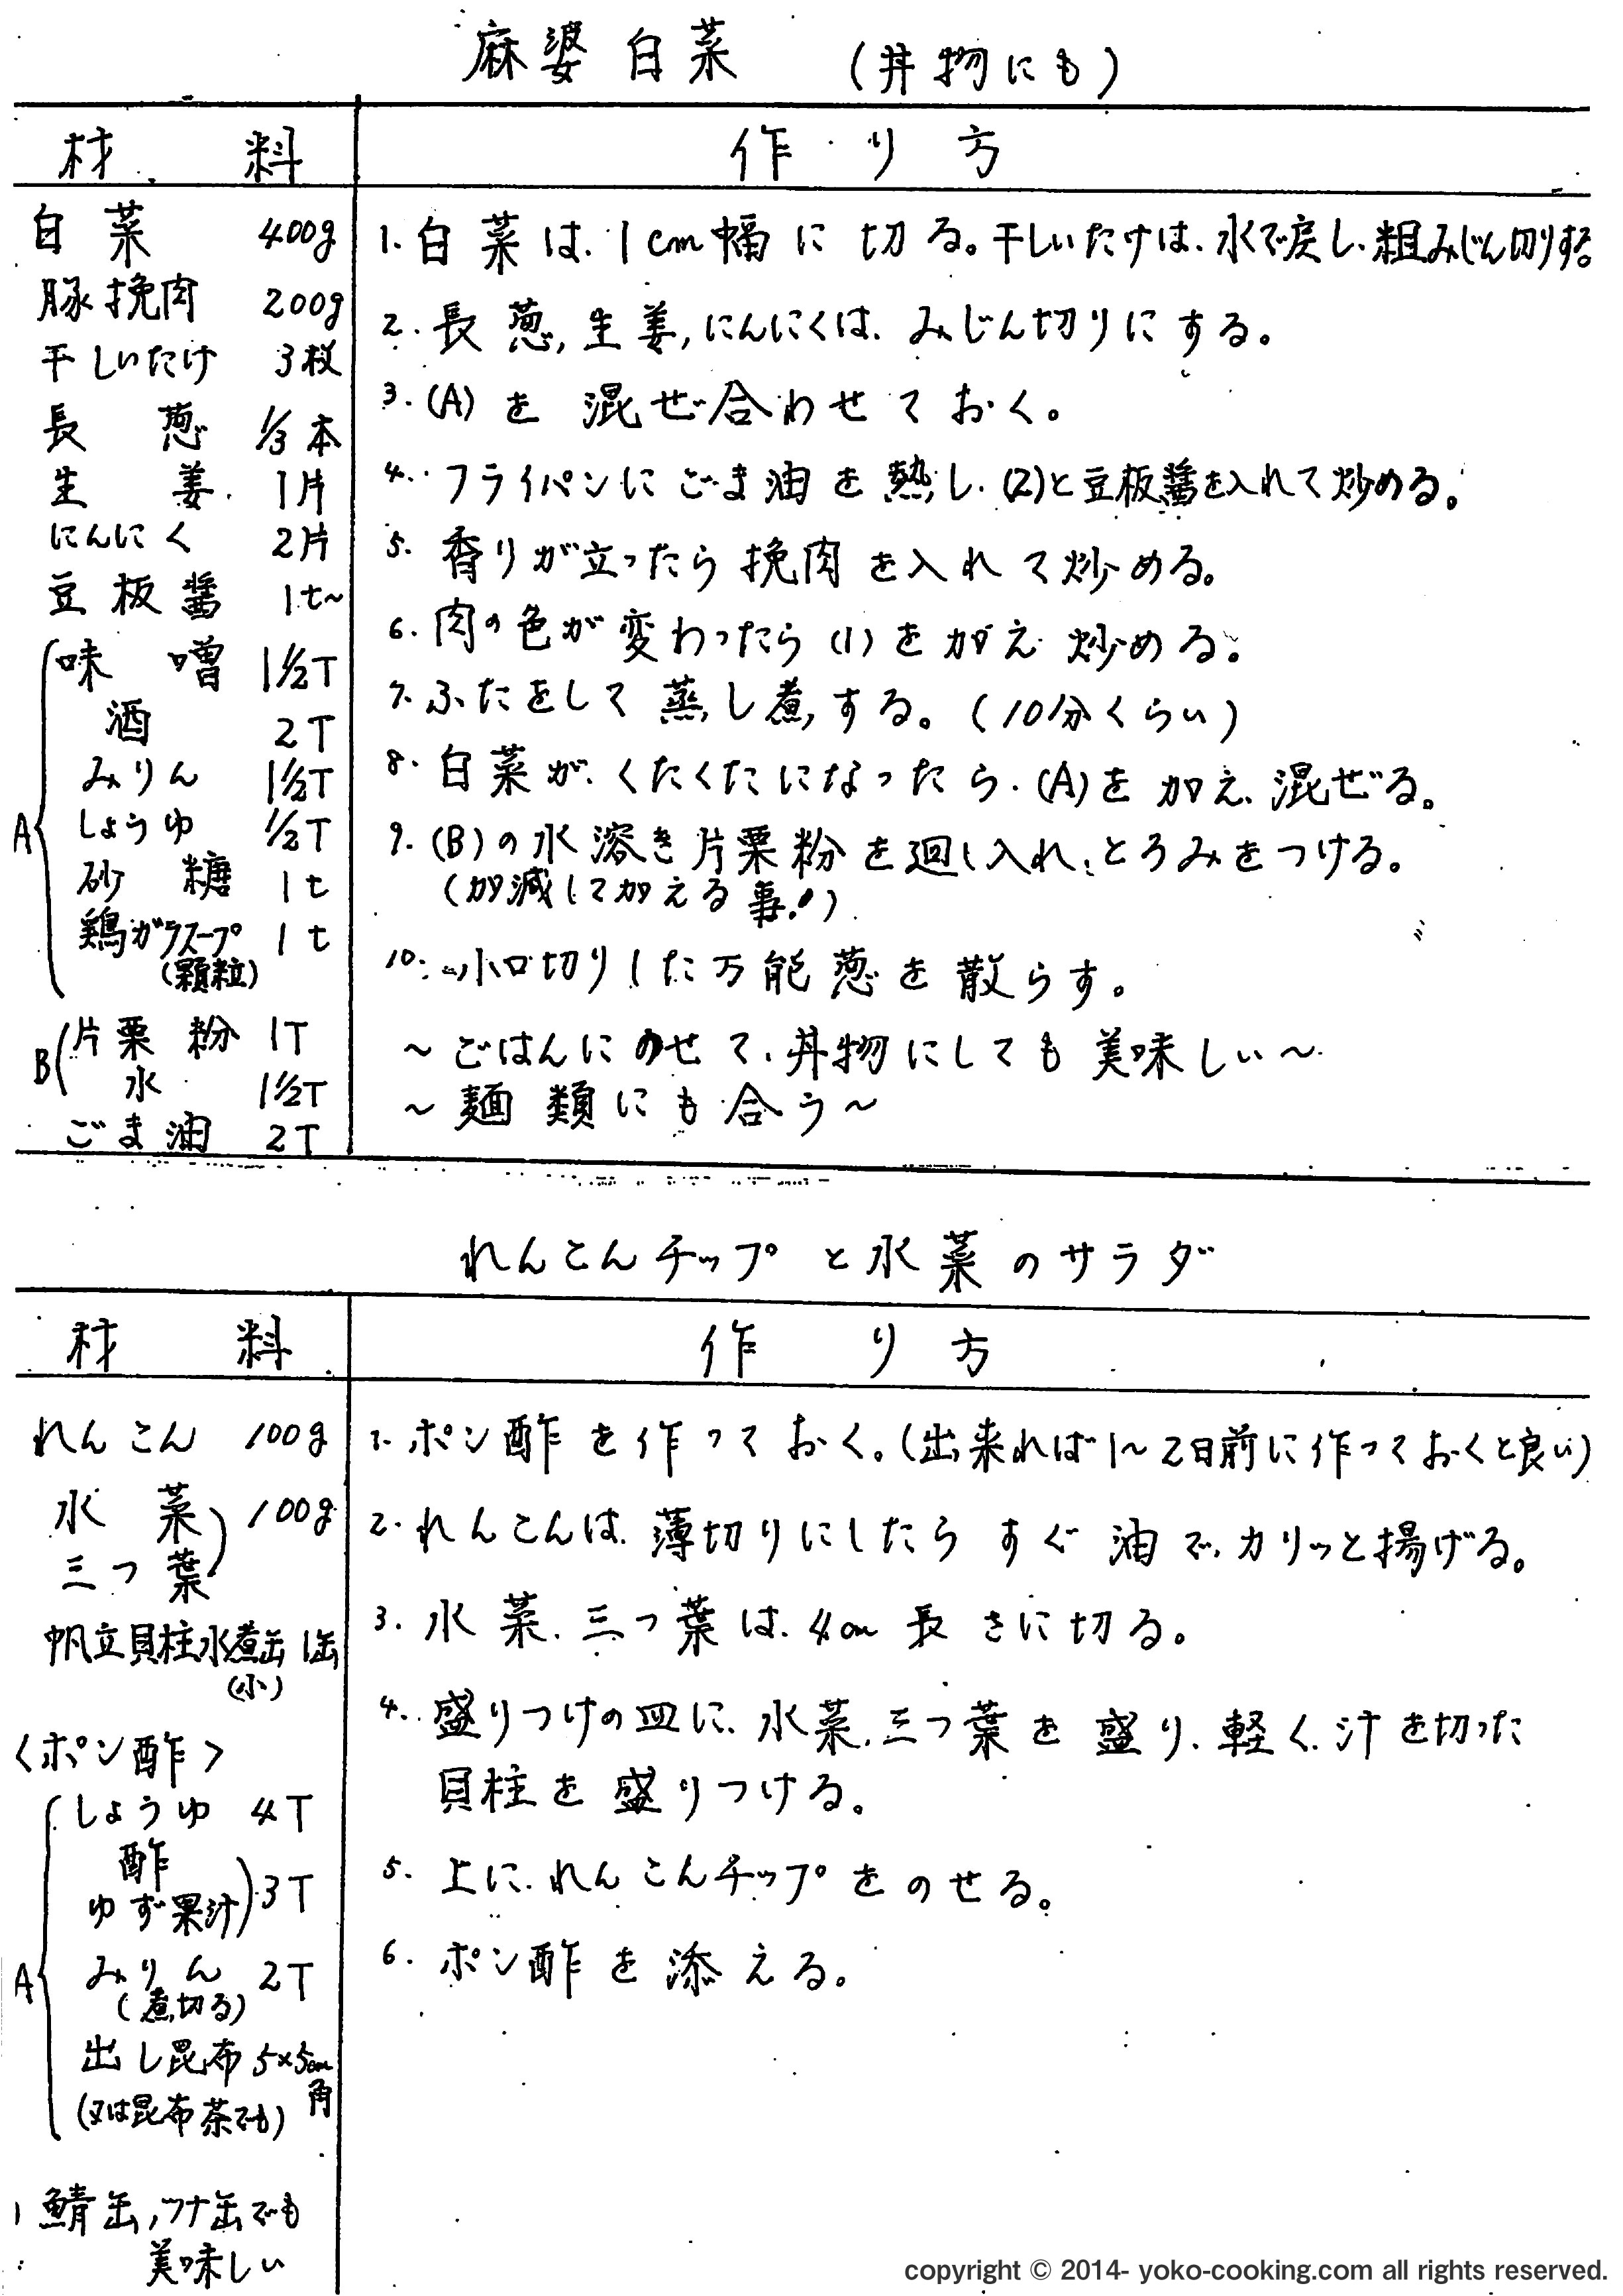 麻婆白菜 (丼物にも)
材料
作り方
白菜 400g
豚挽肉 200g
干しいたけ 3枚
長葱 1/3本
生姜 1片
にんにく 2片
豆板醤 1t~
A
味噌 1 1/2T
酒 2T
みりん 1 1/2T
しょうゆ 1/2T
砂糖 1t
鶏ガラスープ 1t
(顆粒)
B
片栗粉 1T
水 1 1/2T
ごま油 2T
1. 白菜は、1cm幅に切る。干しいたけは、水で戻し、粗みじん切りする。
2. 長葱,生姜,にんにくは、みじん切りにする。
3. (A)を混ぜ合わせておく。
4. フライパンにごま油を熱し、(2)と豆板醤を入れて炒める。
5. 香りが立ったら挽肉を入れて炒める。
6. 肉の色が変わったら(1)を加え炒める。
7. ふたをして蒸し煮する。(10分くらい)
8. 白菜が、くたくたになったら、(A)を加え、混ぜる。
9. (B)の水溶き片栗粉を廻し入れ、とろみをつける。
(加減して加える事!)
10. 小口切りした万能葱を散らす。
~ごはんにのせて、丼物にしても美味しい~
~麺類にも合う~
れんこんチップと水菜のサラダ
材料
作り方
れんこん 100g
水菜
三つ葉 ) 100g
帆立貝柱水煮缶 1缶
(小)
<ポン酢>
A
しょうゆ 4T
酢
ゆず果汁 ) 3T
みりん 2T
(煮切る)
出し昆布 5×5cm
角
(又は昆布茶でも)
鯖缶,ツナ缶でも
美味しい
1. ポン酢を作っておく。(出来れば1~2日前に作っておくと良い)
2. れんこんは、薄切りにしたらすぐ油で、カリッと揚げる。
3. 水菜、三つ葉は、4cm長さに切る。
4. 盛りつけの皿に、水菜、三つ葉を盛り、軽く汁を切った
貝柱を盛りつける。
5. 上に、れんこんチップをのせる。
6. ポン酢を添える。
copyright © 2014- yoko-cooking.com all rights reserved.